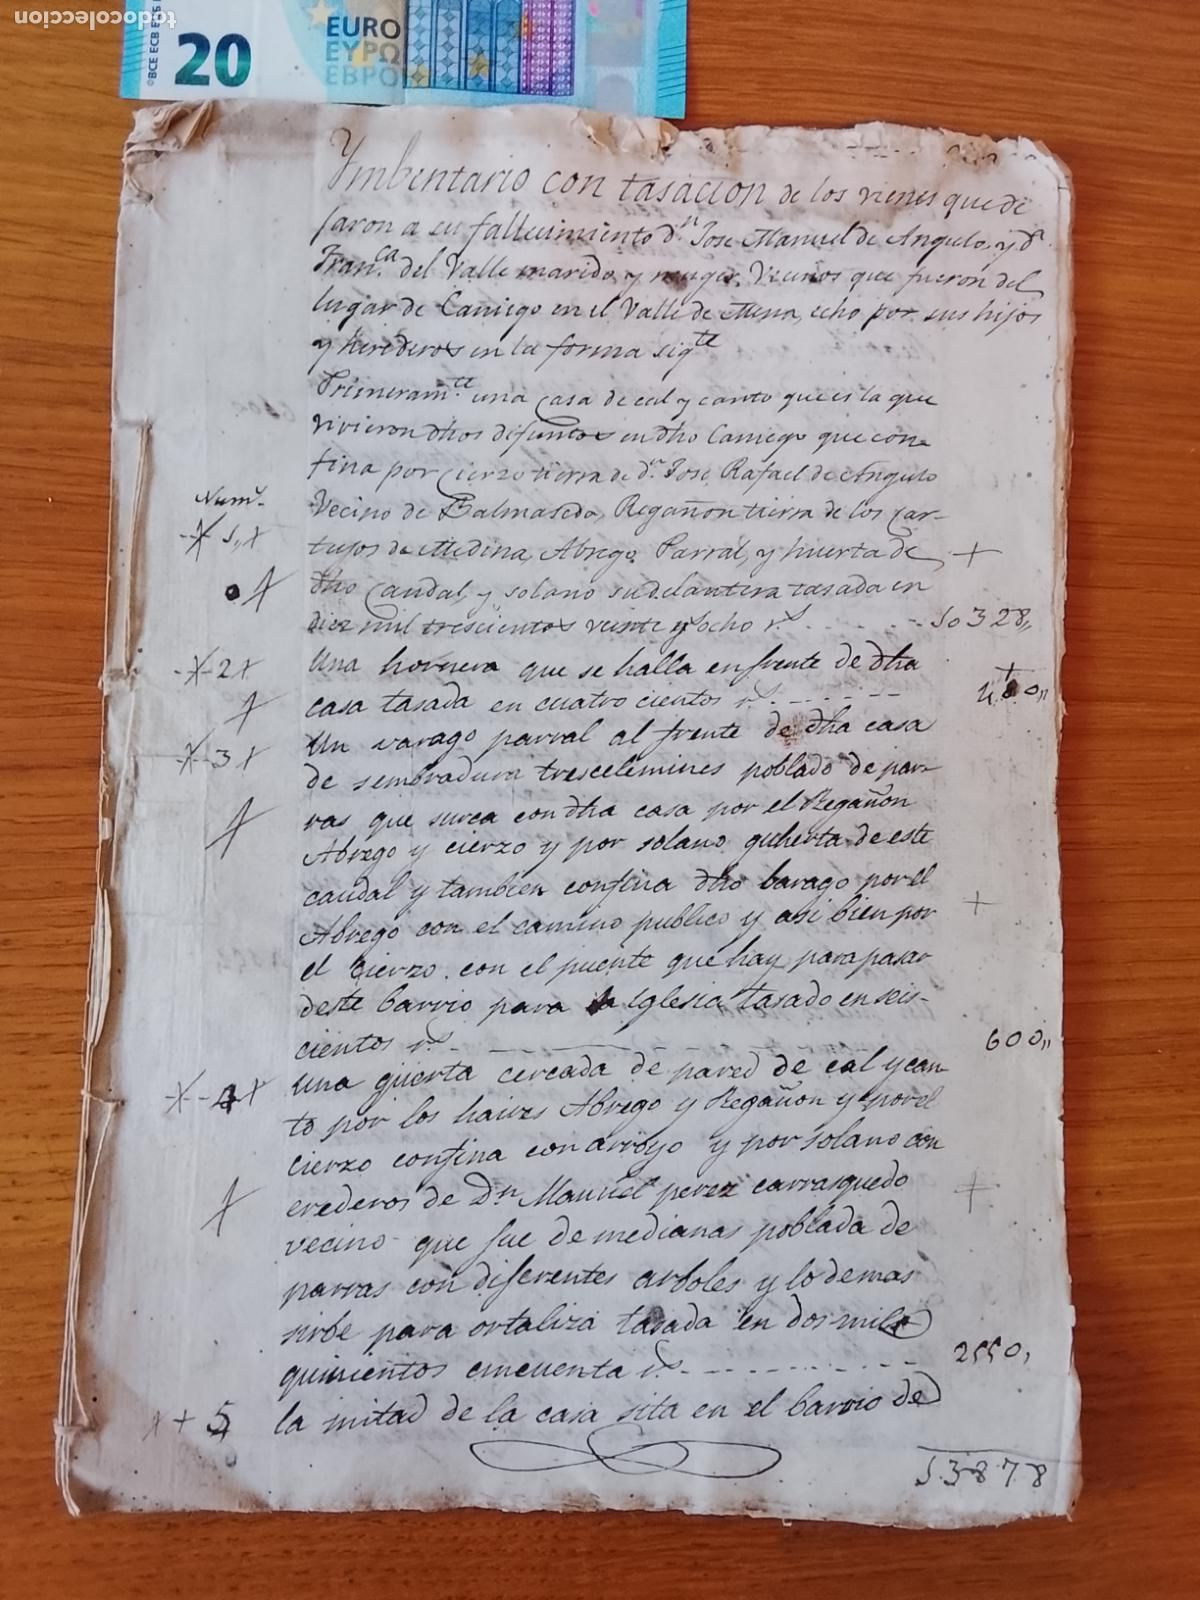 todocoleccion
©BCE ECB
20
EURO
ΕΥΡΩ
ЕВРО
Ymbentario con tasacion de los vienes que de
jaron a su fallecimiento dn Jose Manuel de Angulo, y da
Franca del Valle marido, y muger, Vecinos que fueron del
lugar de Caniego en el Valle de Mena, echo por sus hijos
y herederos en la forma sigte
Primeramte una casa de cal y canto que es la que
vivieron dhos difuntos en dho Caniego que con-
fina por Cierzo tierra de dn Jose Rafael de Angulo
Nums
Vecino de Balmaseda, Regañon tierra de los Car-
1
tujos de Medina, Abrego Parral, y huerta de
dho Caudal, y solano su delantera tasada en
diez mil trescientos veinte y ocho rs 10328,,
2
Una hornera que se halla en frente de dha
casa tasada en cuatro cientos rs 400,,
3
Un varago parral al frente de dha casa
de sembradura tres celemines poblado de par-
ras que surca con dha casa por el Regañon
Abrego y cierzo y por solano guherta de este
caudal y tambien confina dho barago por el
Abrego con el camino publico y asi bien por
el cierzo con el puente que hay para pasar
deste barrio para la Iglesia tasado en seis-
cientos rs 600,,
4
Una güerta cercada de pared de cal y can-
to por los haires Abrego y Regañon y por el
cierzo confina con arroyo y por solano con
erederos de Dn Manuel perez carrasquedo
vecino que fue de medianas poblada de
parras con diferentes arboles y lo demas
sirbe para ortaliza tasada en dos mil
quinientos cincuenta rs 2550,
5
la mitad de la casa sita en el barrio de
13878